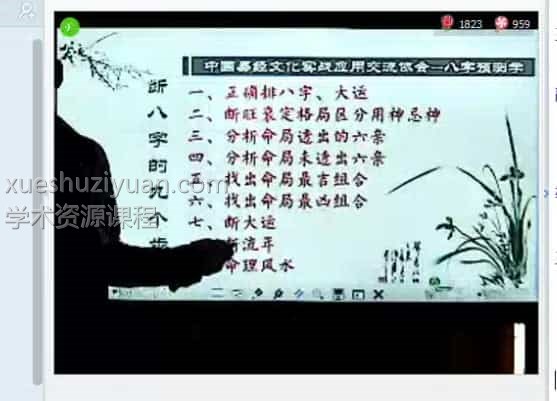 1823
959
中国易经文化实战应用交流协会—八字预测学
断八字的九个步
一、正确排八字、大运
二、断旺衰定格局区分用神忌神
三、分析命局透出的六亲
四、分析命局未透出六亲
五、找出命局最吉组合
六、找出命局最凶组合
七、断大运
断流年
命理风水
xueshuziyuan.com
学术资源课程